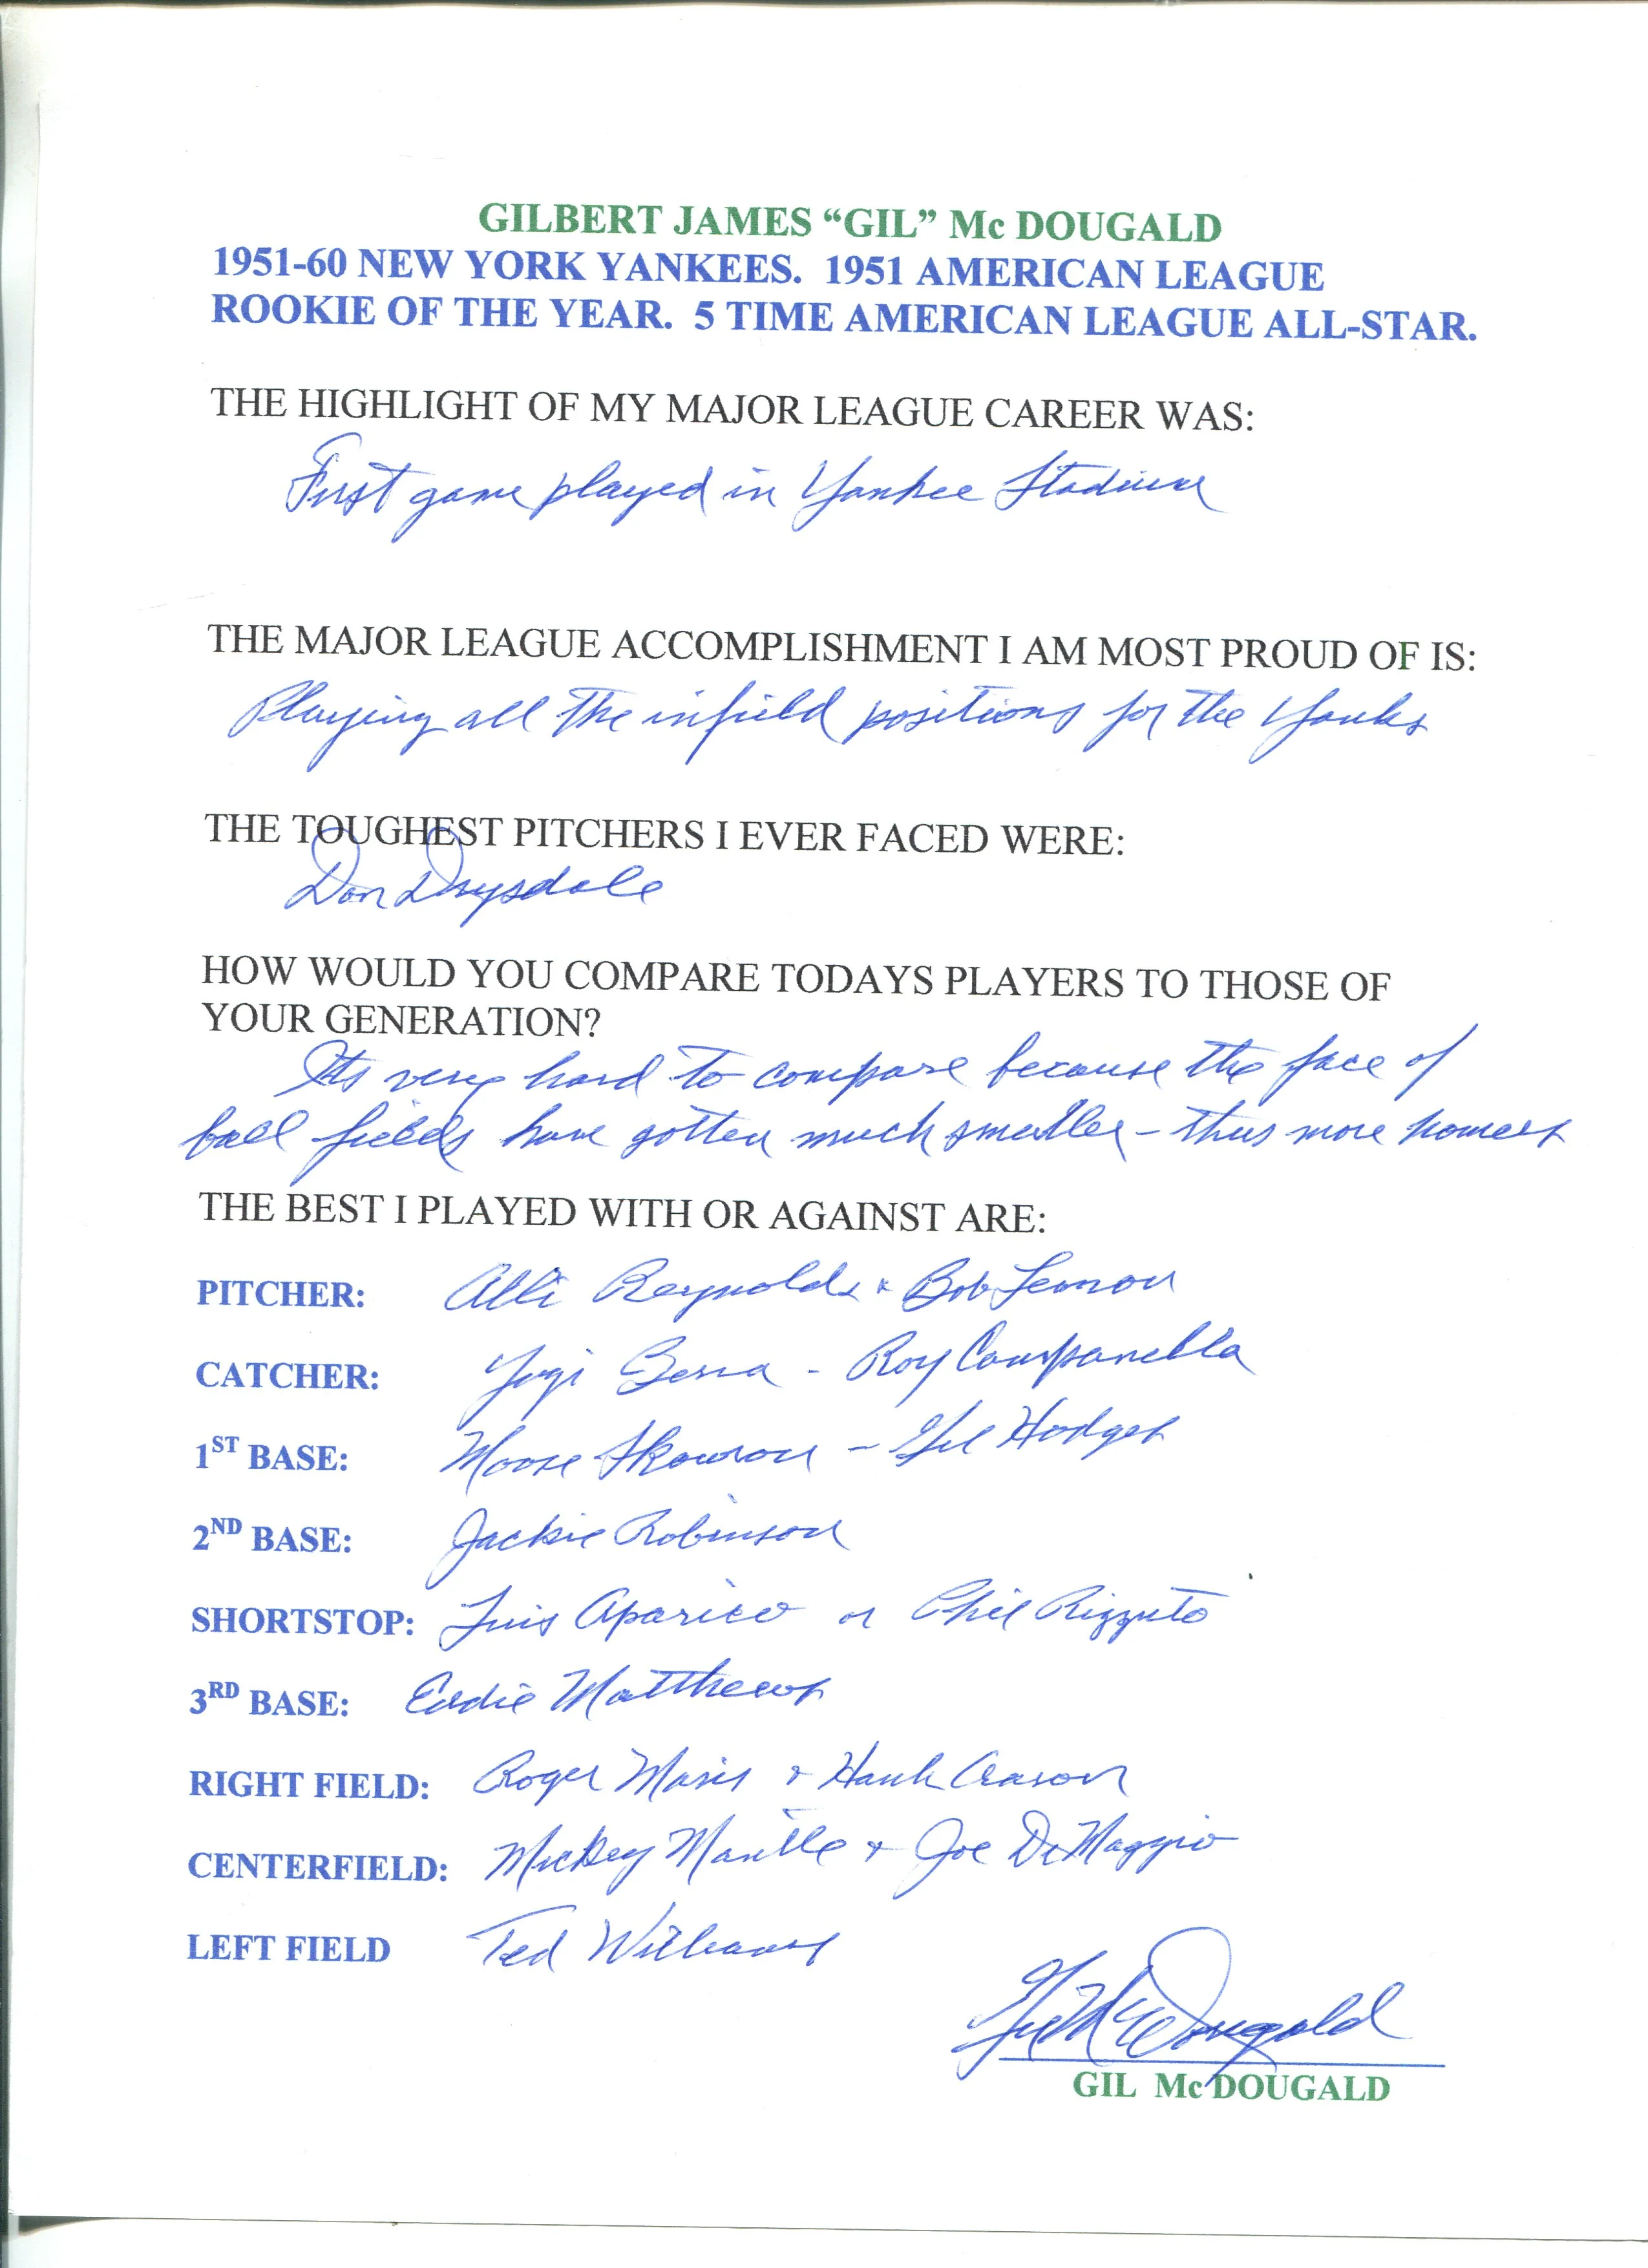 GILBERT JAMES “GIL” Mc DOUGALD
1951-60 NEW YORK YANKEES. 1951 AMERICAN LEAGUE
ROOKIE OF THE YEAR. 5 TIME AMERICAN LEAGUE ALL-STAR.
THE HIGHLIGHT OF MY MAJOR LEAGUE CAREER WAS:
First game played in Yankee Stadium
THE MAJOR LEAGUE ACCOMPLISHMENT I AM MOST PROUD OF IS:
Playing all the infield positions for the Yanks
THE TOUGHEST PITCHERS I EVER FACED WERE:
Don Drysdale
HOW WOULD YOU COMPARE TODAYS PLAYERS TO THOSE OF
YOUR GENERATION?
Its very hard to compare because the face of
ball fields have gotten much smaller - thus more homers
THE BEST I PLAYED WITH OR AGAINST ARE:
PITCHER: Alli Reynolds & Bob Lemon
CATCHER: Yogi Berra - Roy Campanella
1ST BASE: Moose Skowron - Gil Hodges
2ND BASE: Jackie Robinson
SHORTSTOP: Luis Aparico or Phil Rizzuto
3RD BASE: Eddie Matthews
RIGHT FIELD: Roger Maris & Hank Aaron
CENTERFIELD: Mickey Mantle & Joe DiMaggio
LEFT FIELD Ted Williams
Gil McDougald
GIL McDOUGALD